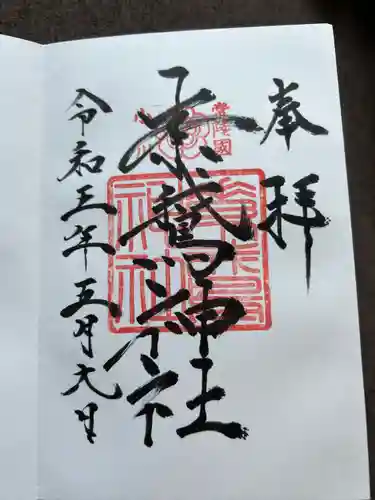 奉拝
常陸國
素鵞神社
令和三年五月九日